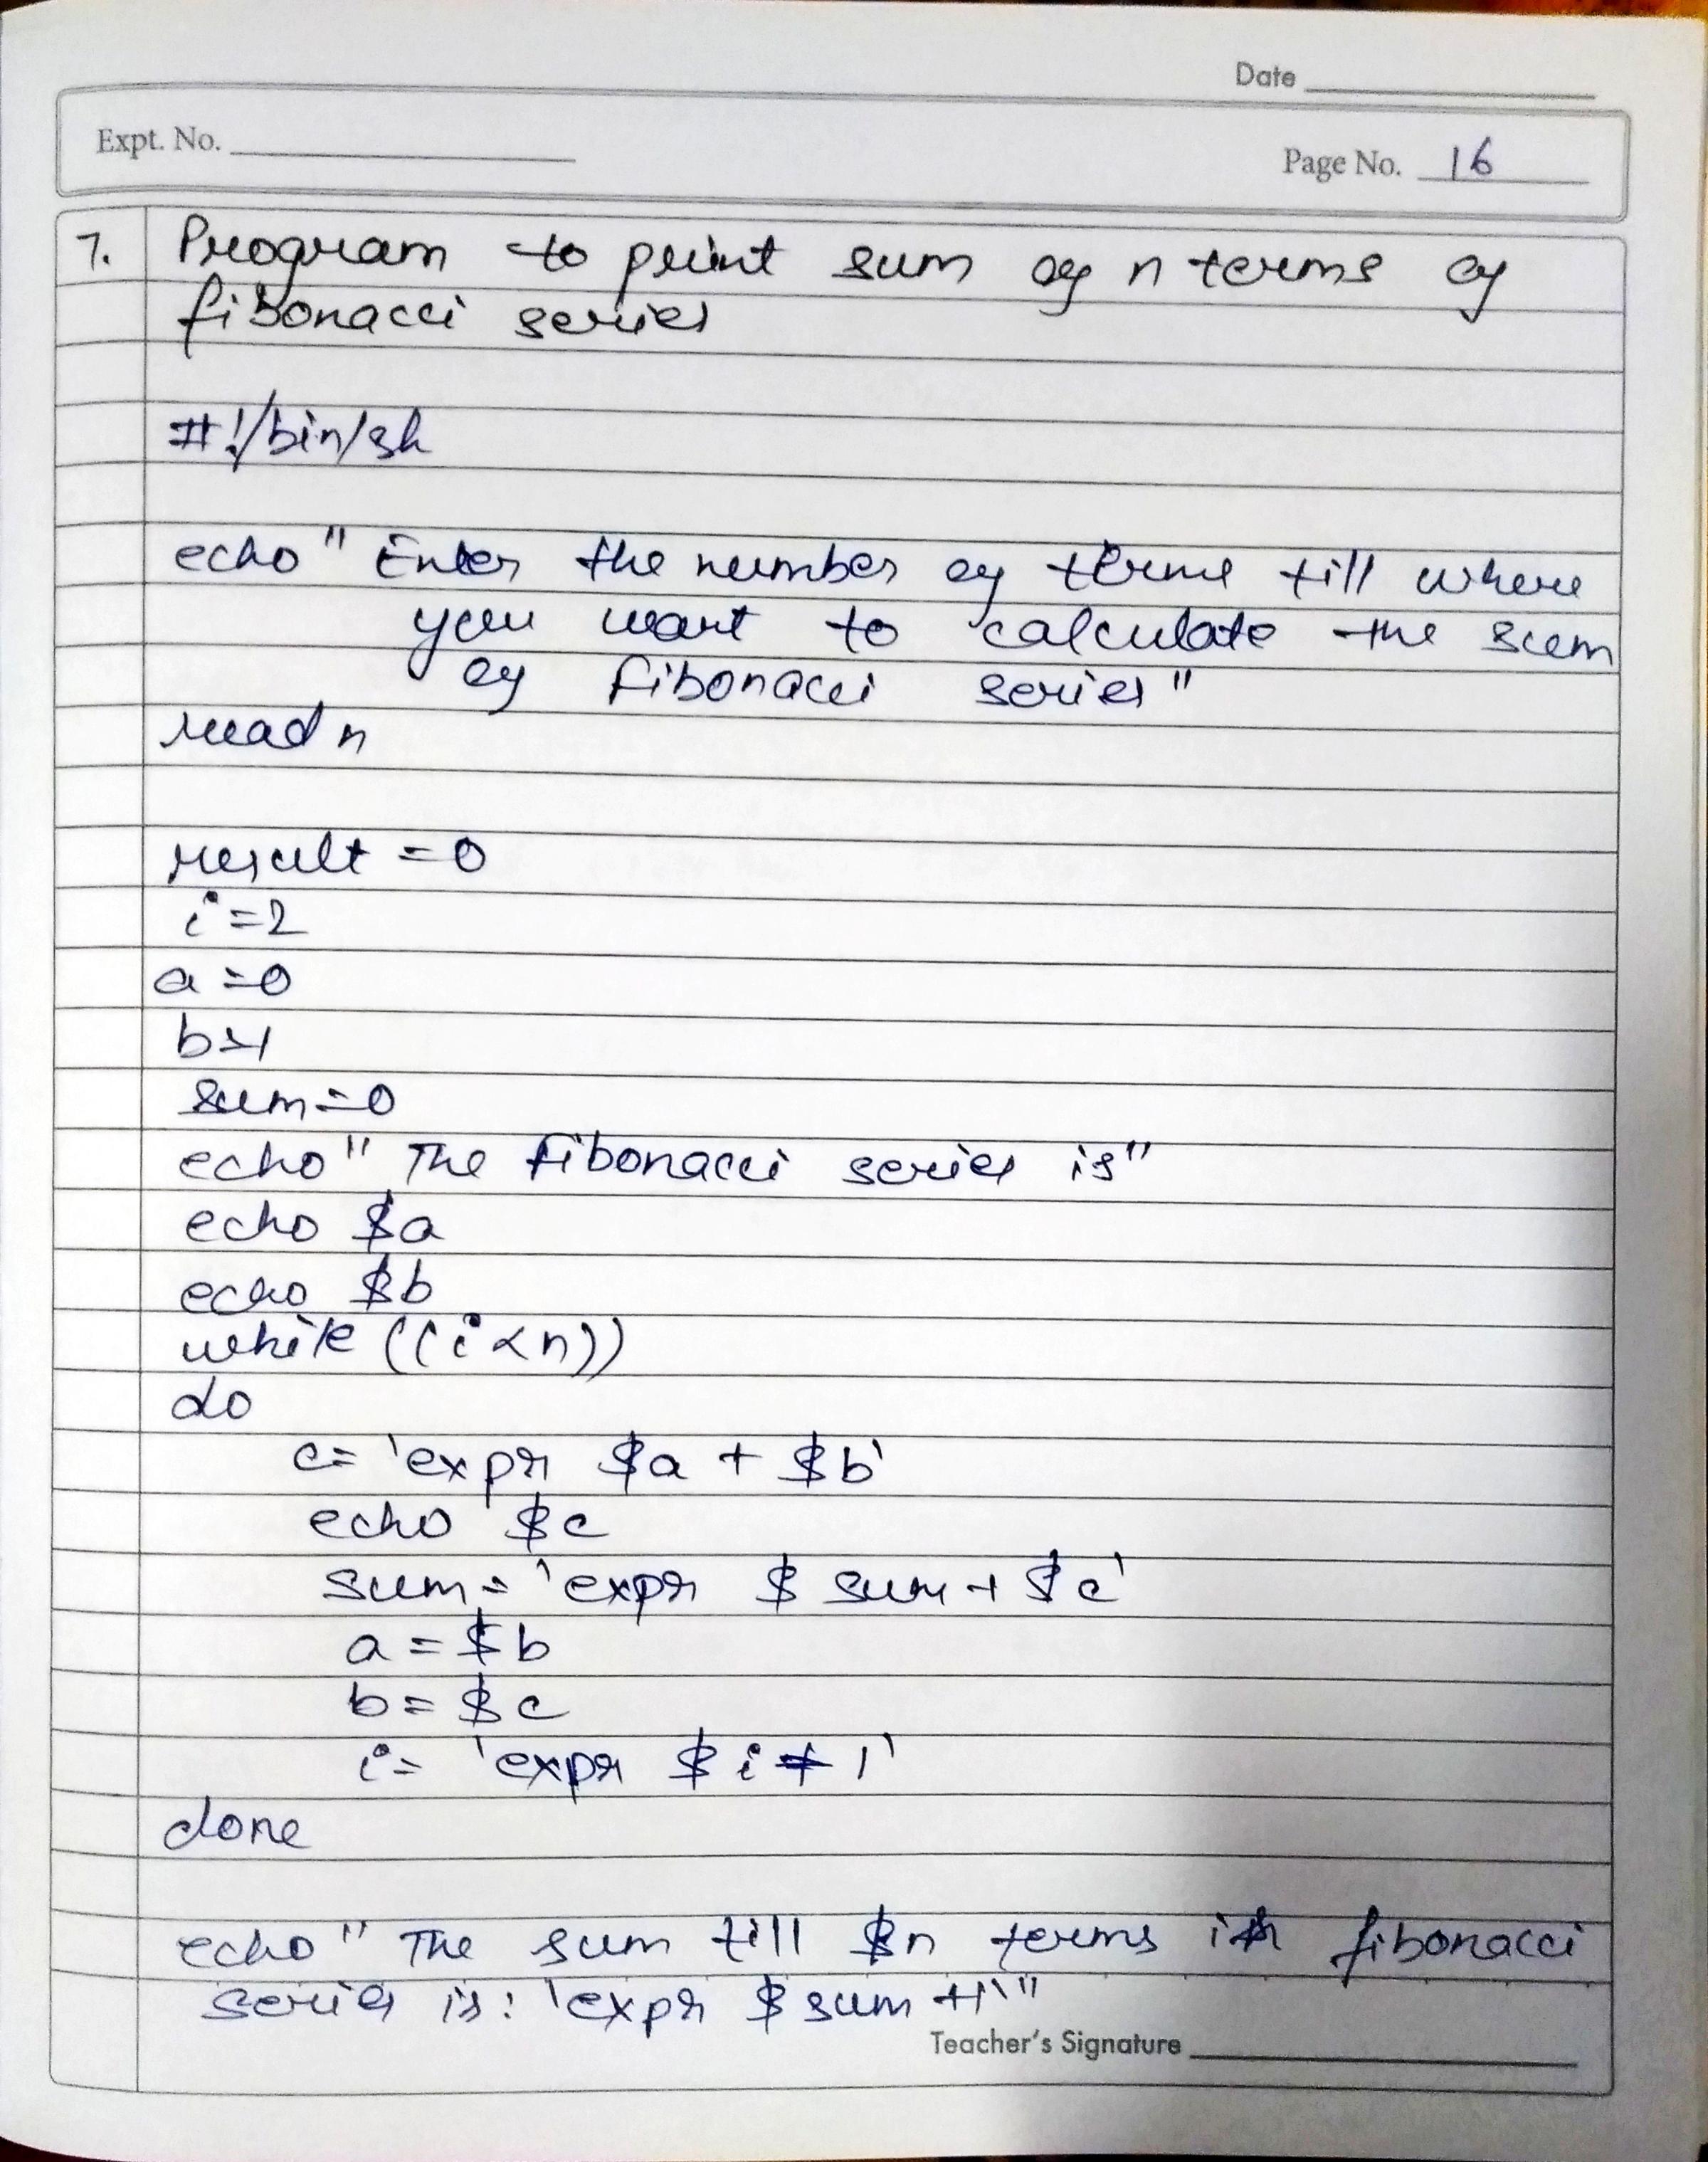 Date
Expt. No.
Page No. 16
7. Program to print sum of n terms of
fibonacci series
#!/bin/sh
echo " Enter the number of terms till where
you want to calculate the sum
of fibonacci series"
read n
result = 0
i = 2
a = 0
b = 1
sum = 0
echo " The fibonacci series is"
echo $a
echo $b
while ((i < n))
do
c = `expr $a + $b`
echo $c
sum = `expr $ sum + $c`
a = $b
b = $c
i = `expr $i + 1`
done
echo " The sum till $n terms in fibonacci
series is: `expr $ sum + 1`"
Teacher's Signature